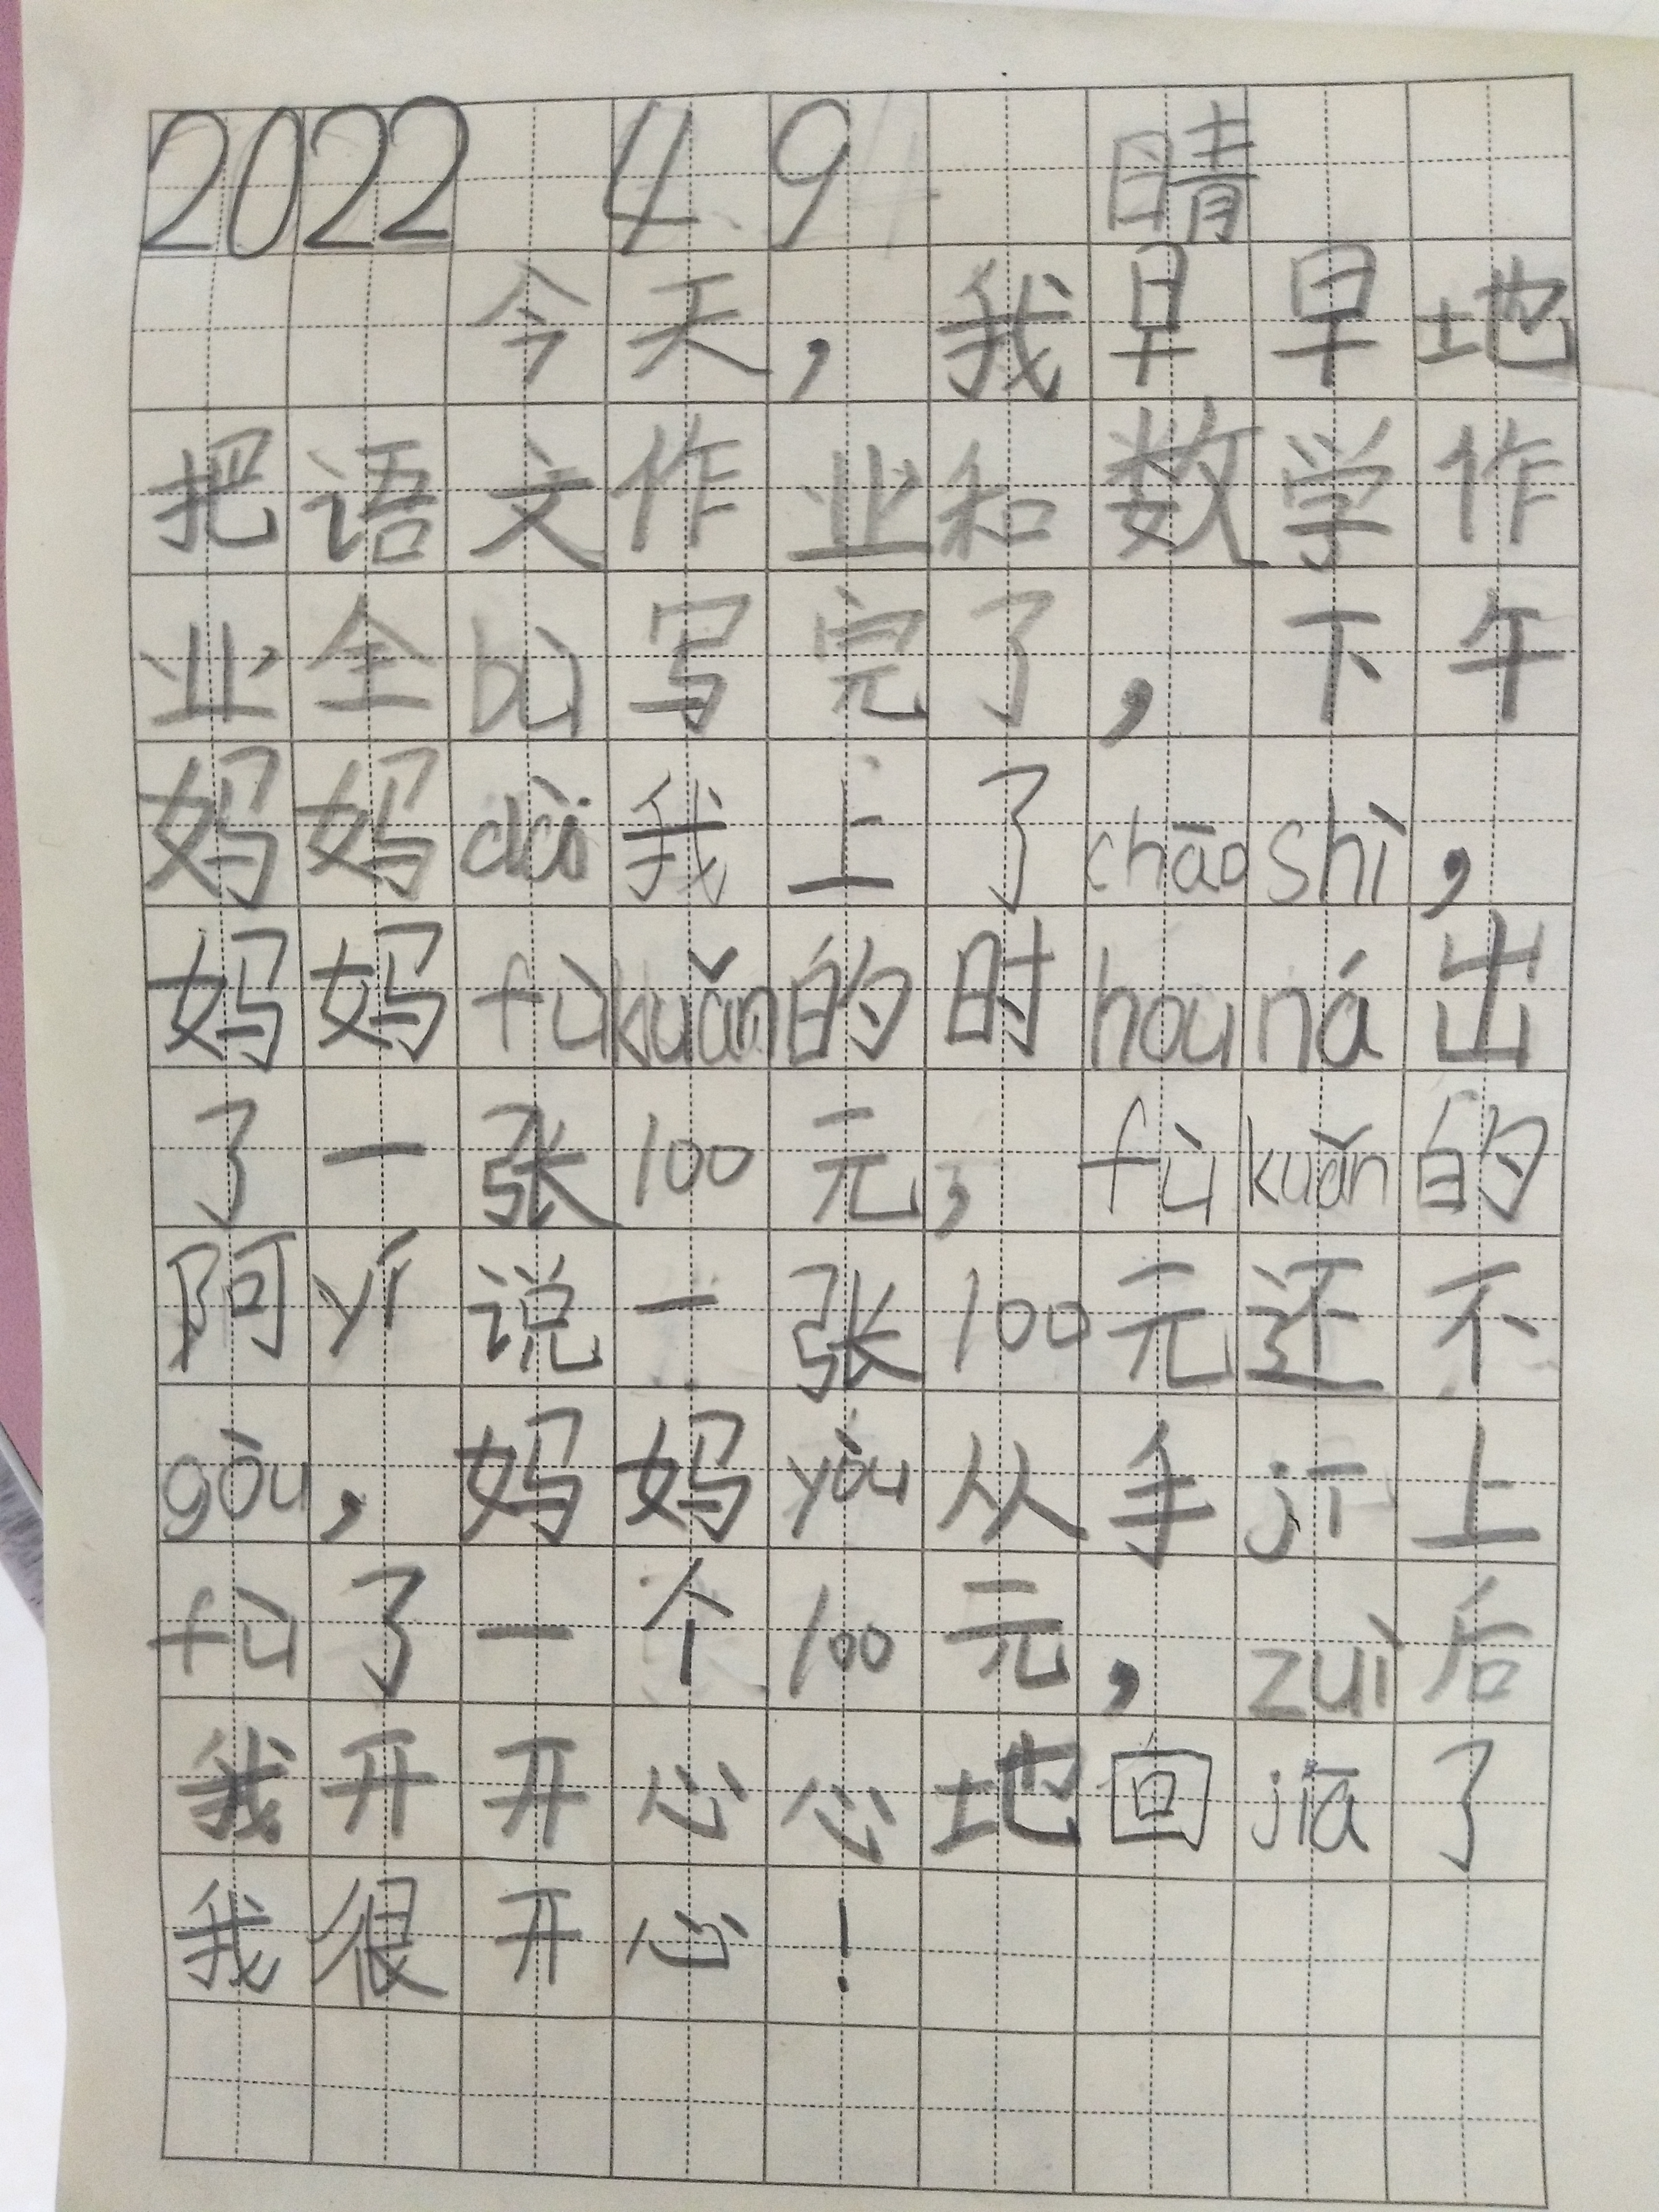 2022 4 9 晴
今天,我早早地
把语文作业和数学作
业全bù写完了,下午
妈妈dài我上了chāoshì,
妈妈fùkuǎn的时hóuná出
了一张100元,fùkuǎn的
阿yí说一张100元还不
gòu,妈妈yòu从手jī上
fù了一个100元,zuì后
我开开心心地回jiā了
我很开心!